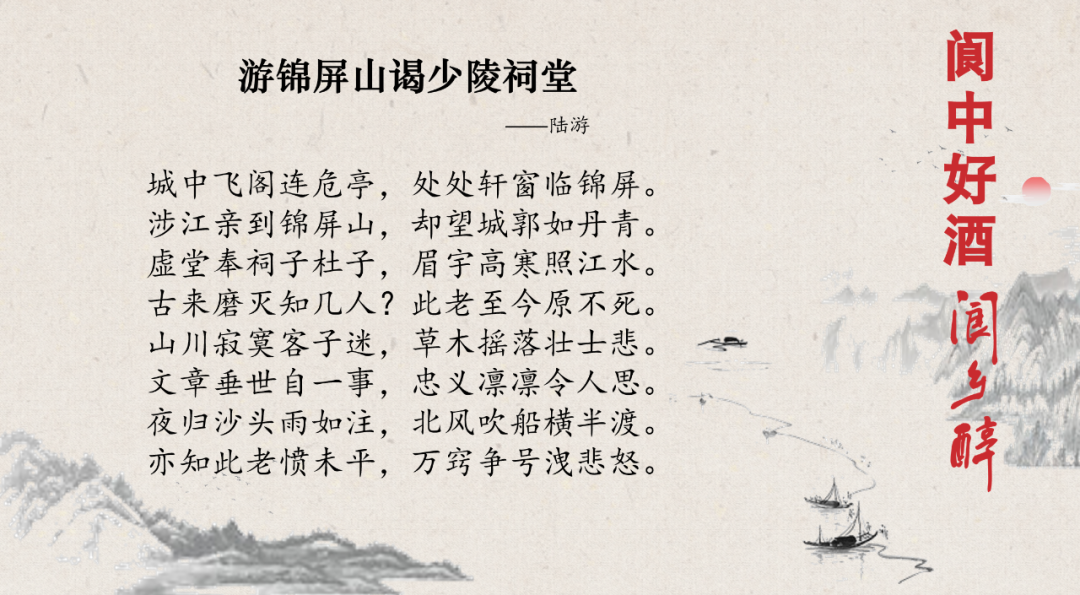 游锦屏山谒少陵祠堂
——陆游
城中飞阁连危亭，处处轩窗临锦屏。
涉江亲到锦屏山，却望城郭如丹青。
虚堂奉祠子杜子，眉宇高寒照江水。
古来磨灭知几人？此老至今原不死。
山川寂寞客子迷，草木摇落壮士悲。
文章垂世自一事，忠义凛凛令人思。
夜归沙头雨如注，北风吹船横半渡。
亦知此老愤未平，万窍争号洩悲怒。
阆中好酒
阆乡醇